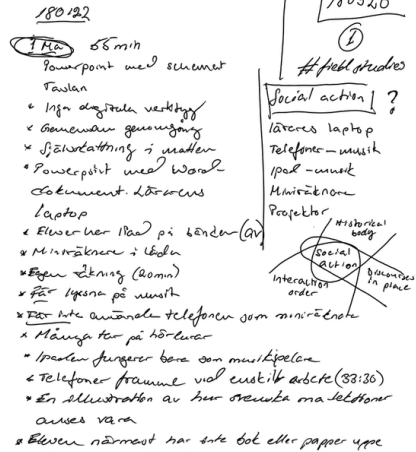 180122
1 Ma 55 min
Powerpoint med schemat
Tavlan
* Inga digitala verktyg
* Gemensam genomgång
* Självskattning i matten
* Powerpoint med Word-
dokument. Lärarens
laptop
* Elever har iPad på bänken (av)
* Miniräknare i lådan
* Egen räkning (20min)
* Får lyssna på musik
* Får inte använda telefonen som miniräknare
* Många tar på hörlurar
* Ipaden fungerar bara som musikspelare
* Telefoner framme vid enskilt arbete (33:30)
* En illustration av hur svenska ma lektioner
anses vara
* Eleven närmast har inte bok eller papper uppe
180320
I
#fieldstudies
Social action ?
lärares laptop
Telefoner - musik
Ipad - musik
Miniräknare
Projektor
Historical
body
Social
action
Interaction
order
Discourses
in place